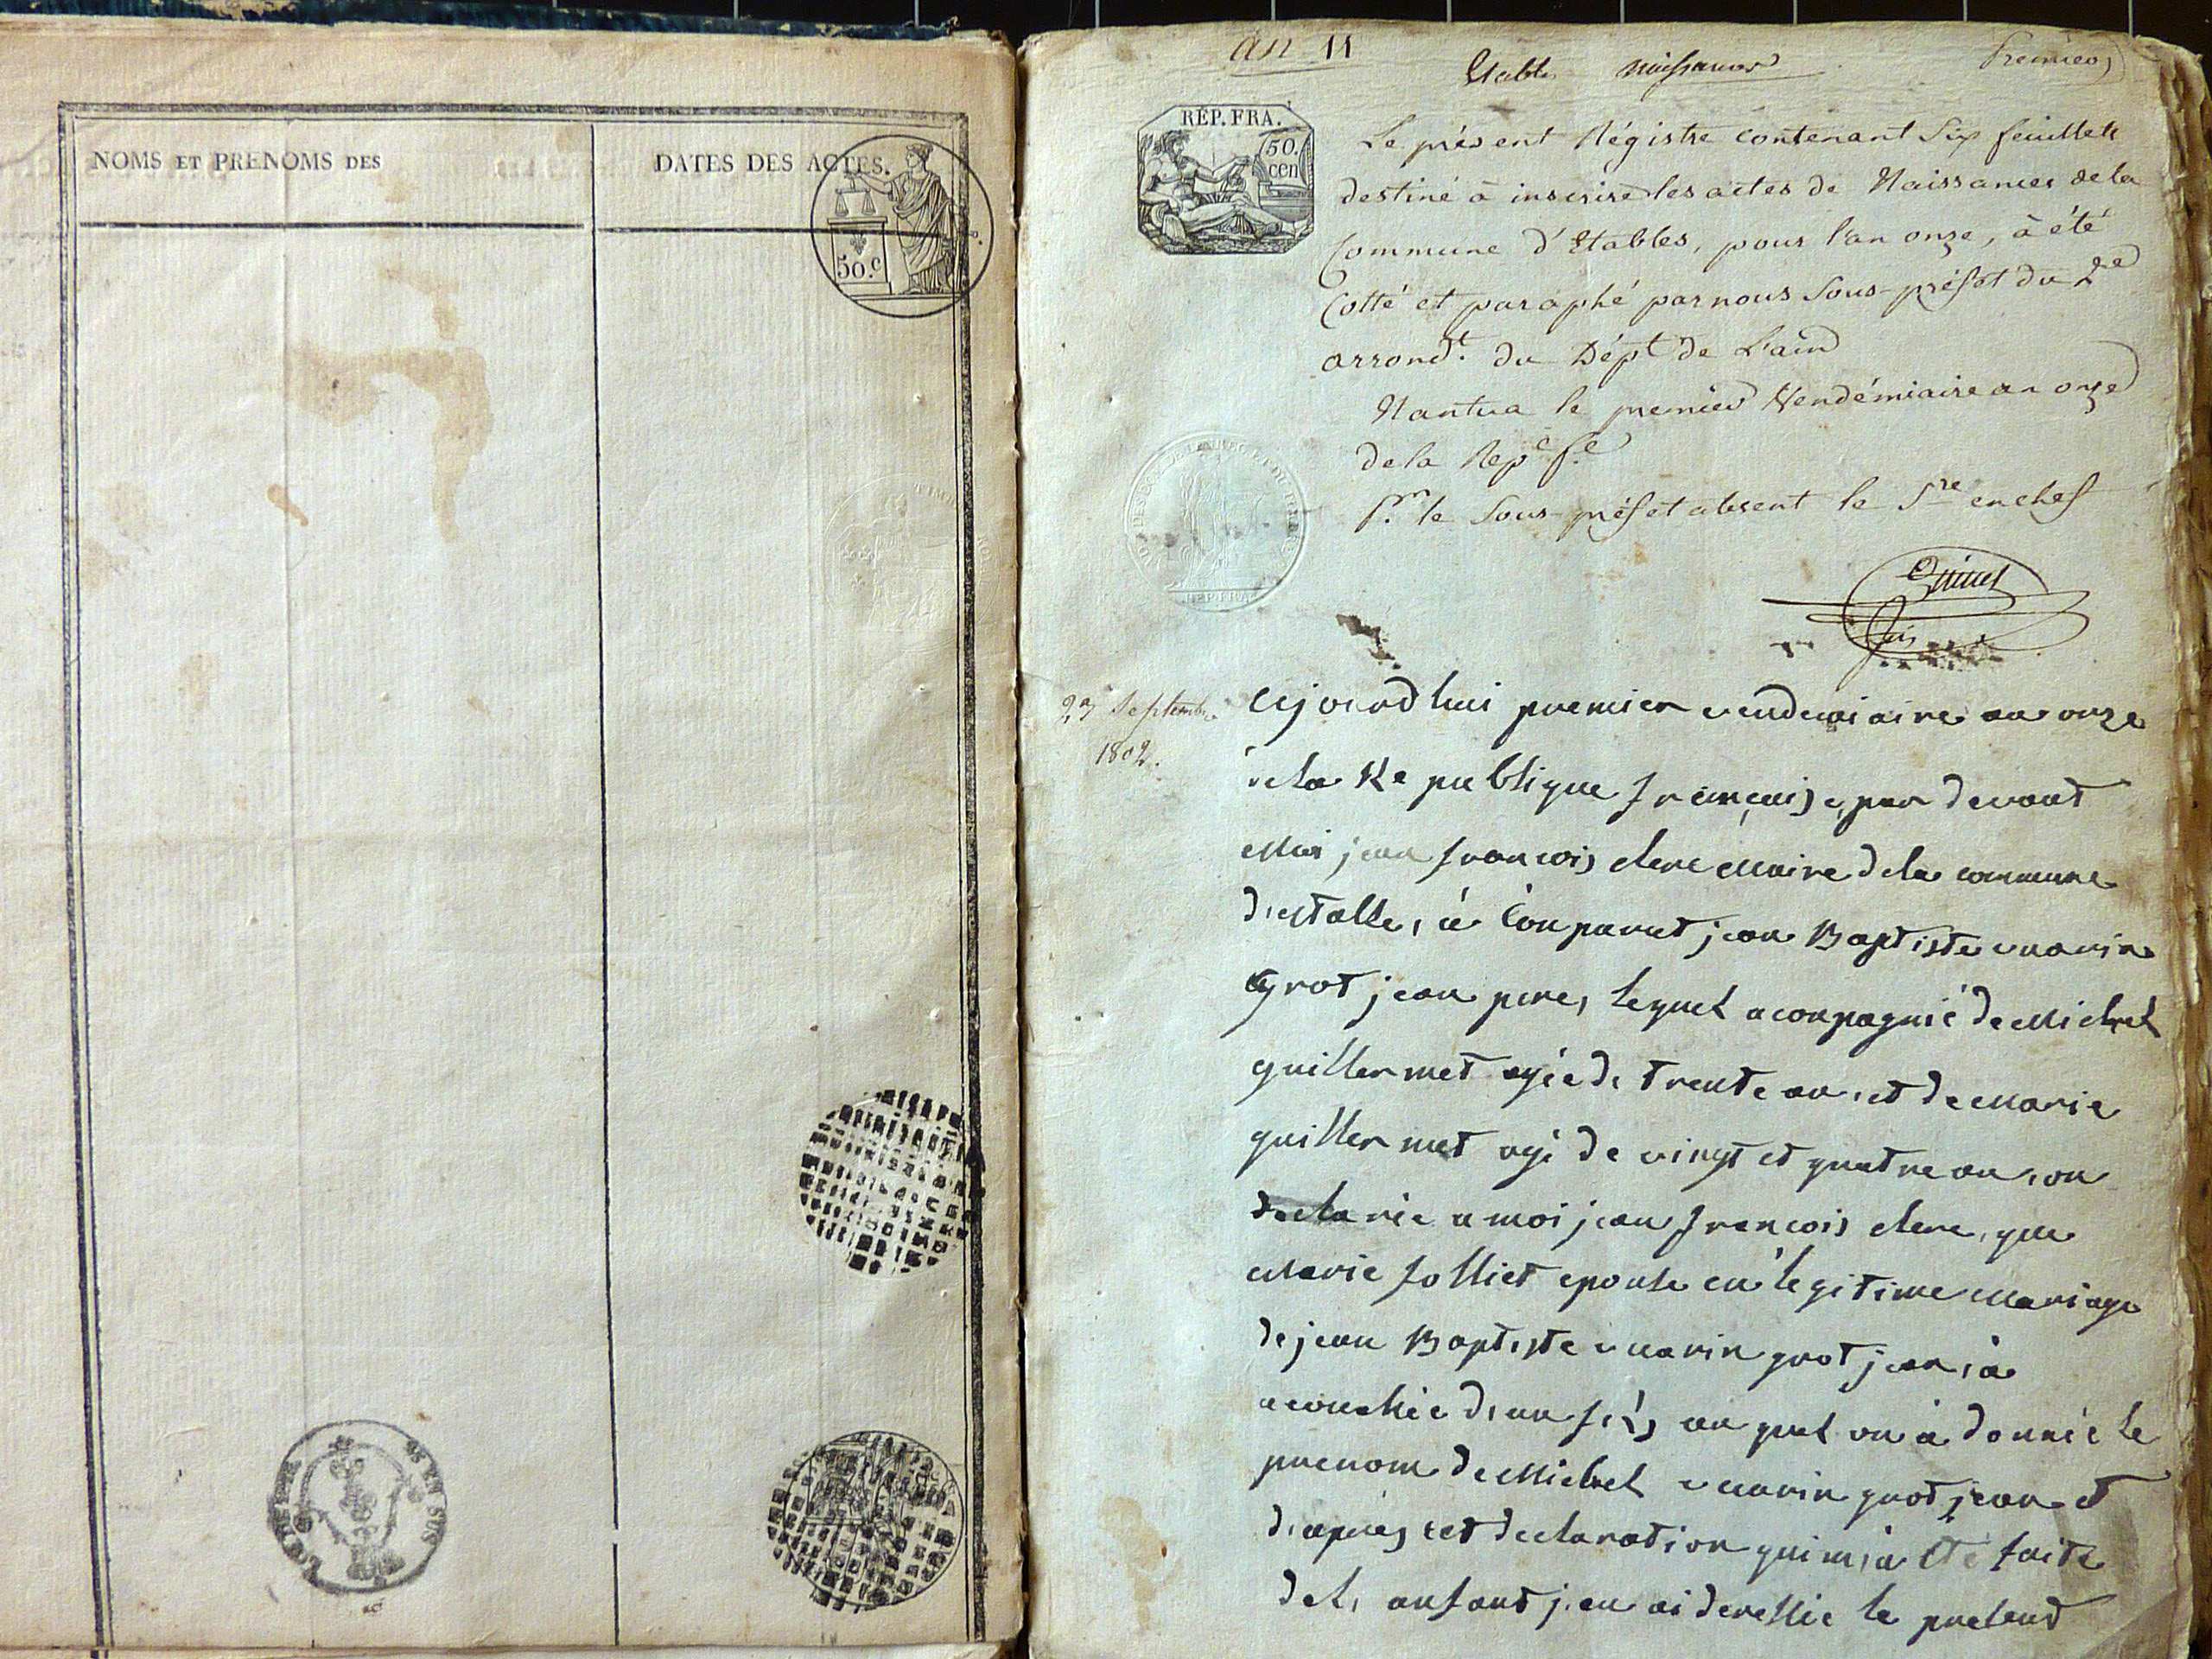 NOMS ET PRENOMS DES
DATES DES ACTES.
50.c
EN SUS
an 11
Etables naissances
Premier
RÉP. FRA.
50.
cen
Le présent Régistre contenant Six feuillets
destiné à inscrire les actes de Naissances de la
Commune d'Etables, pour l'an onze, à été
Cotté et paraphé par nous Sous-préfet du 2e
arrondt. du Dépt de L'ain
Nantua le premier Vendémiaire an onze
de la Repe fe
Pr. le Sous-préfet absent le Sre en chef
23 Septembre
1802.
Cejourd hui premier vendemiaire an onze
dela Re publique françaisse par devant
Moi jean francois clerc Maire dela commune
d,estable, à conparut jean Baptiste vuarin
grot jean pere, lequel aconpagnié de Michel
guillermet agée de trente an, et de Marie
guillermet agé de vingt et quatre an, on
declarée a moi jean francois clerc, que
Marie folliet epouse en legitime Mariage
de jean Baptiste vuarin grot jean, à
acouchée d,un fils au quel on à donnée le
prenom de Michel vuarin grot jean et
d,apres cet declaration qui m,a Eté faite
del, anfant j,en ai deressée le presend